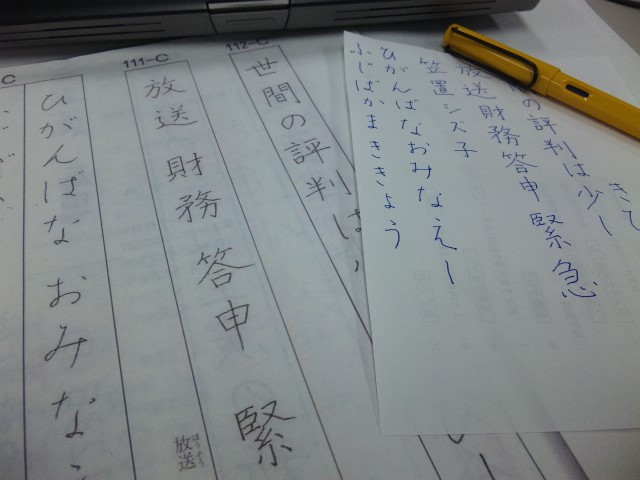 112-C
世間の評判は
111-C
放送 財務 答申 緊
放送
C
ひがんばな おみな
きて
の評判は少し
放送 財務答申 緊急
笠置シズ子
ひがんばなおみなえし
ふじばかまききょう